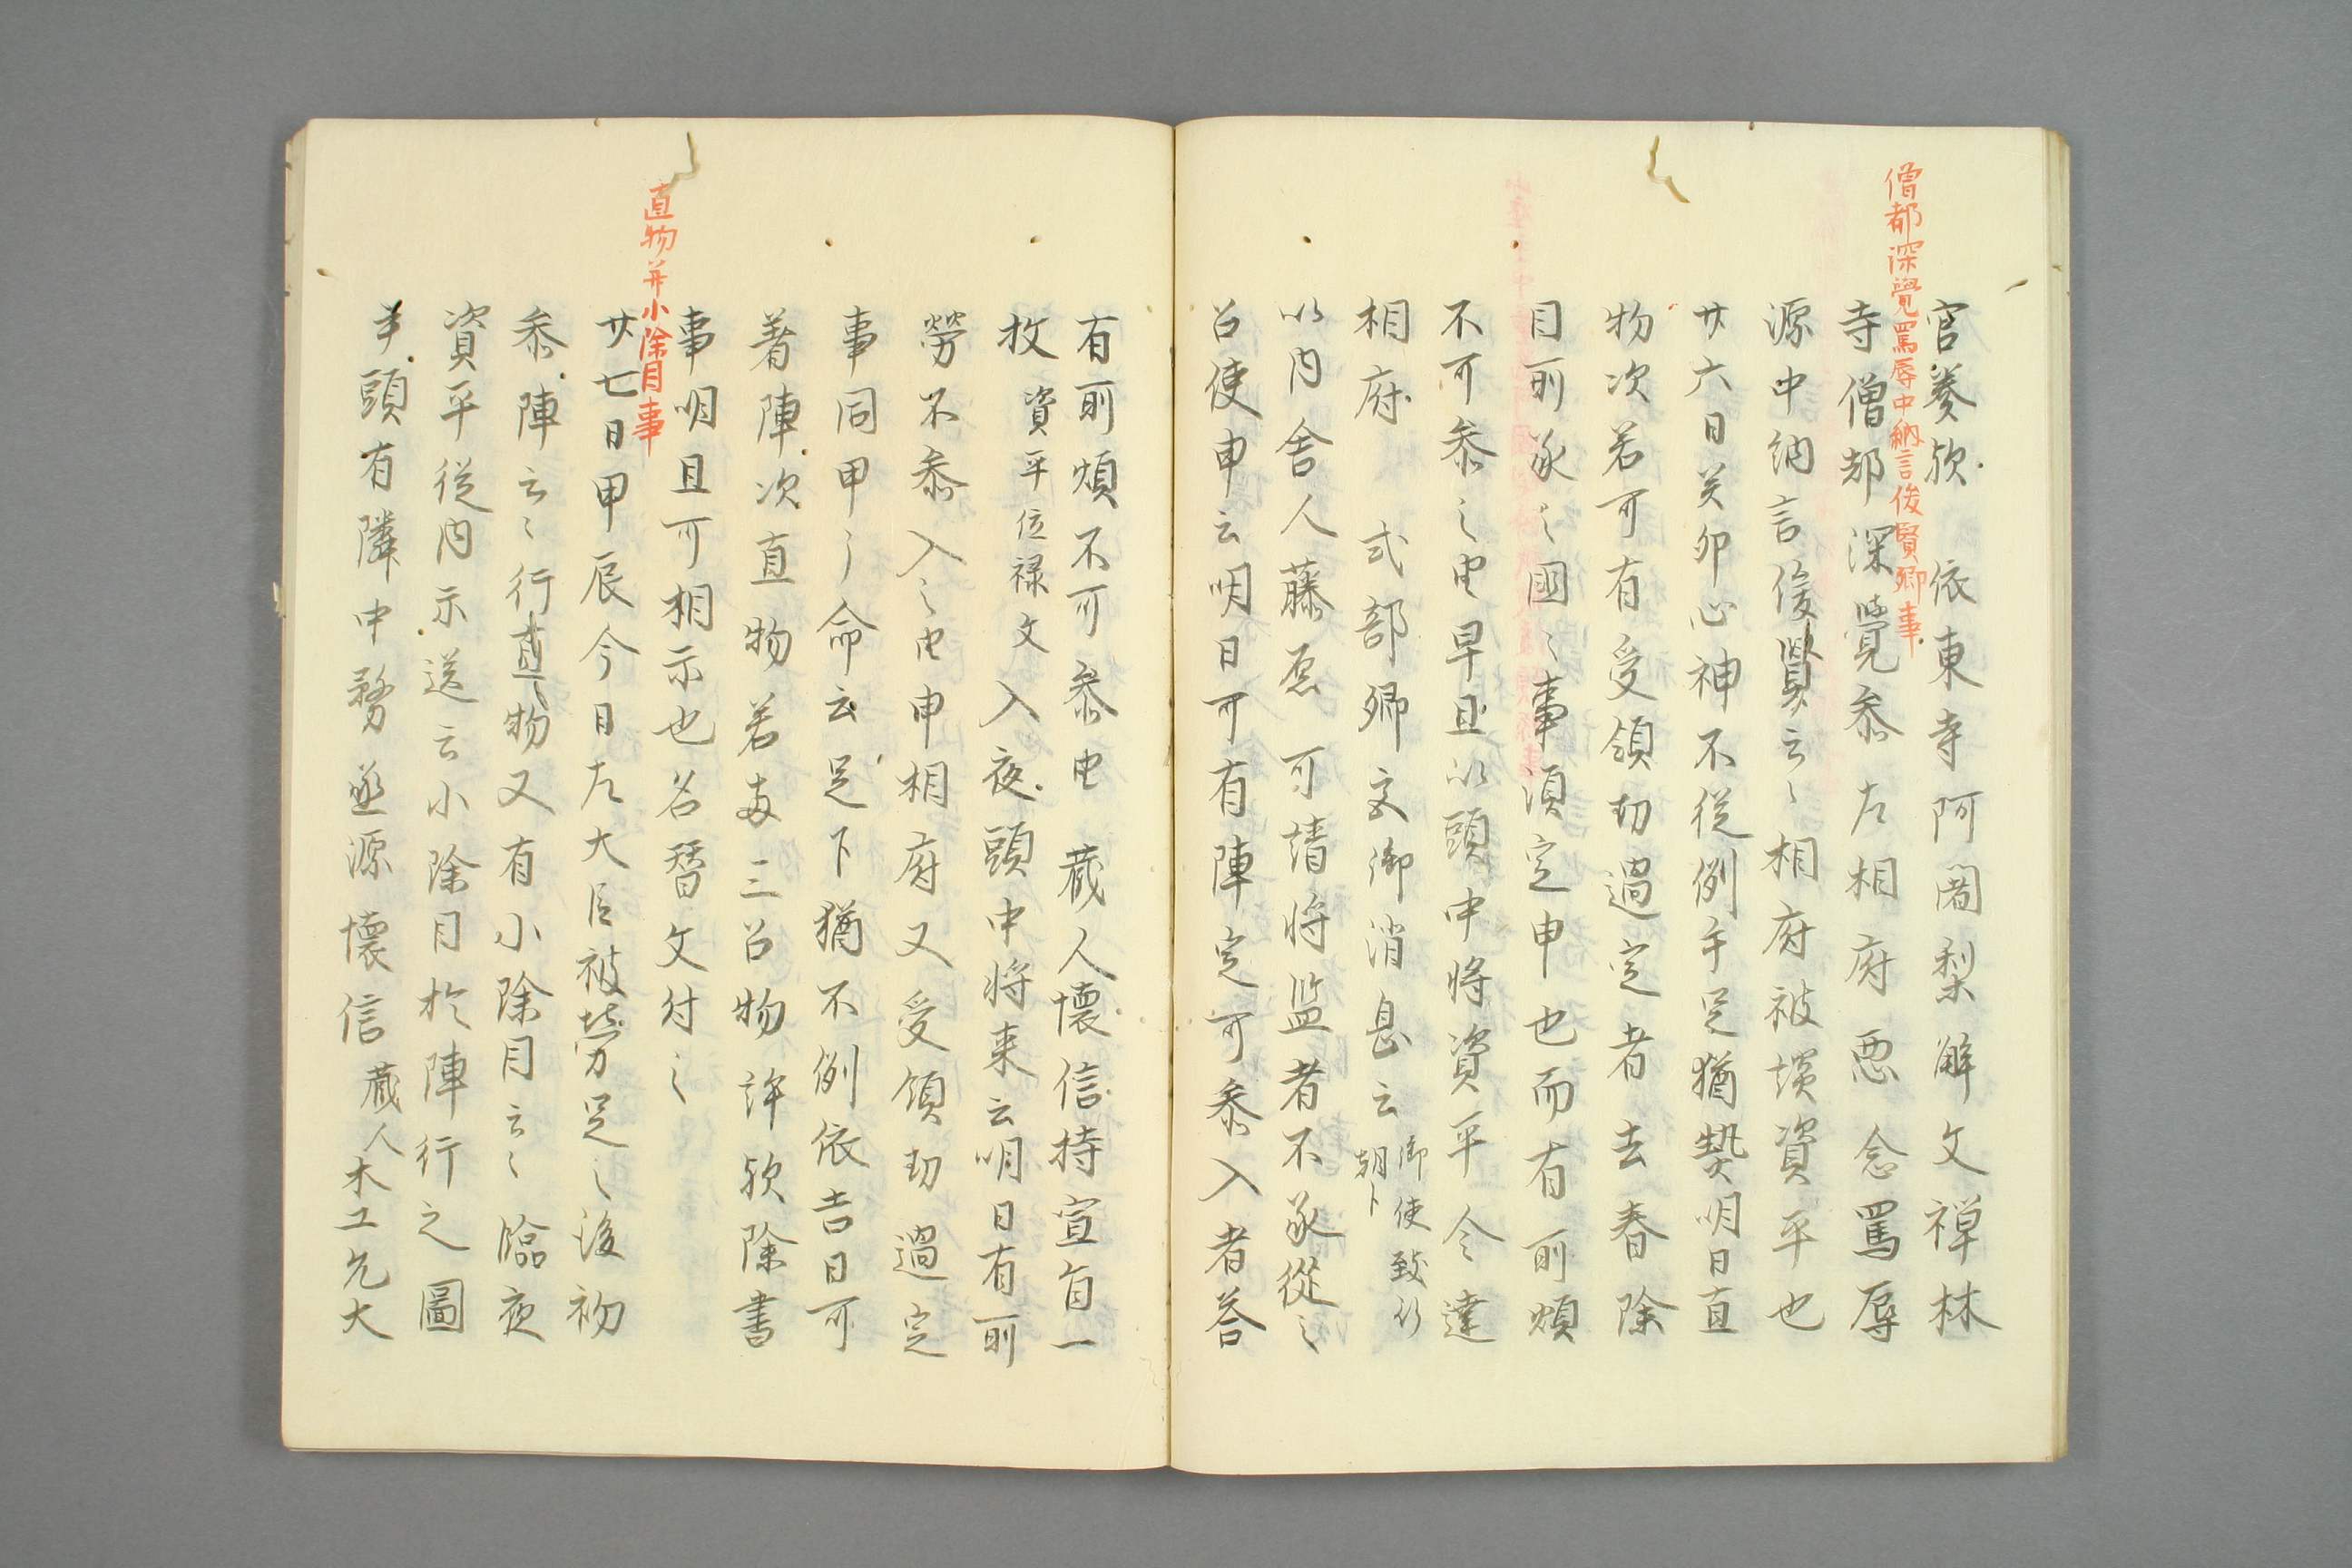 僧都深覺罵辱中納言俊賢卿事
官奏欤 依東寺阿闍梨解文禅林
寺僧都深覺参左相府悪念罵辱
源中納言俊賢云々相府被嘆資平也
廿六日癸卯心神不従例午足猶勞明日直
物次若可有受領功過定者去春除
目所承之國々事須定申也而有所煩
不可参之由早旦以頭中将資平令達
相府 式部卿宮御消息云
御使致行
朝臣
以内舎人藤原 可請将監者不承従之
召使申云明日可有陣定可参入者答
有所煩不可参由 蔵人懐信持宣旨一
枚 資平位禄文 入夜頭中将来云明日有所
勞不参入之由申相府又受領功過定
事同申了命云足下猶不例依吉日可
著陣次直物若両三召物許欤除書
事明旦可相示也名簪文付之
直物并小除目事
廿七日甲辰今日左大臣被勞足之後初
参陣云々行直物又有小除目云々臨夜
資平従内示送云小除目於陣行之圖
頭有隣中務丞源懐信 蔵人 木工允大